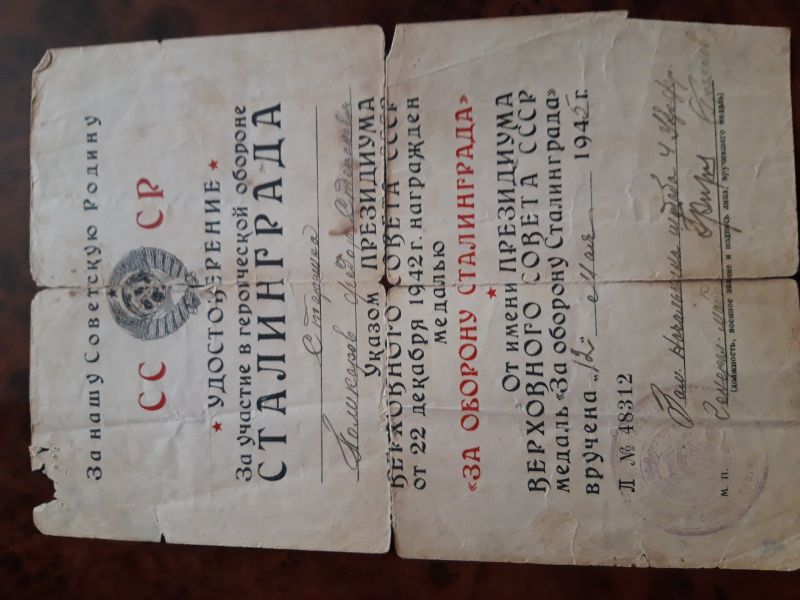 За нашу Советскую Родину
СС СР
УДОСТОВЕРЕНИЕ
За участие в героической обороне
СТАЛИНГРАДА
Старшина
Указом ПРЕЗИДИУМА
ВЕРХОВНОГО СОВЕТА СССР
от 22 декабря 1942 г. награжден
медалью
«ЗА ОБОРОНУ СТАЛИНГРАДА»
От имени ПРЕЗИДИУМА
ВЕРХОВНОГО СОВЕТА СССР
медаль «За оборону Сталинграда»
вручена „12“ мая 1945 г.
Л № 48312
Зам. Начальника штаба 4
М. П.
(должность, военное звание и подпись лица, вручившего медаль)